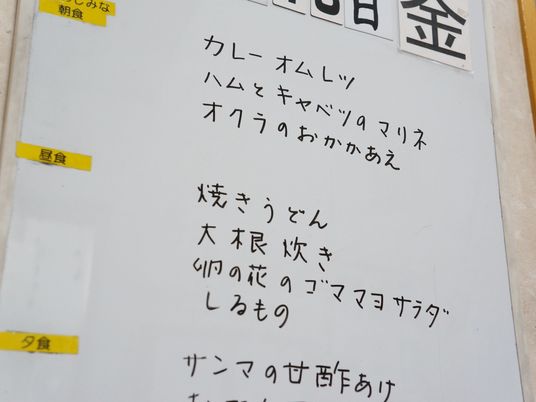 金
朝食
カレーオムレツ
ハムとキャベツのマリネ
オクラのおかかあえ
昼食
焼きうどん
大根炊き
卯の花のゴママヨサラダ
しるもの
夕食
サンマの甘酢あけ